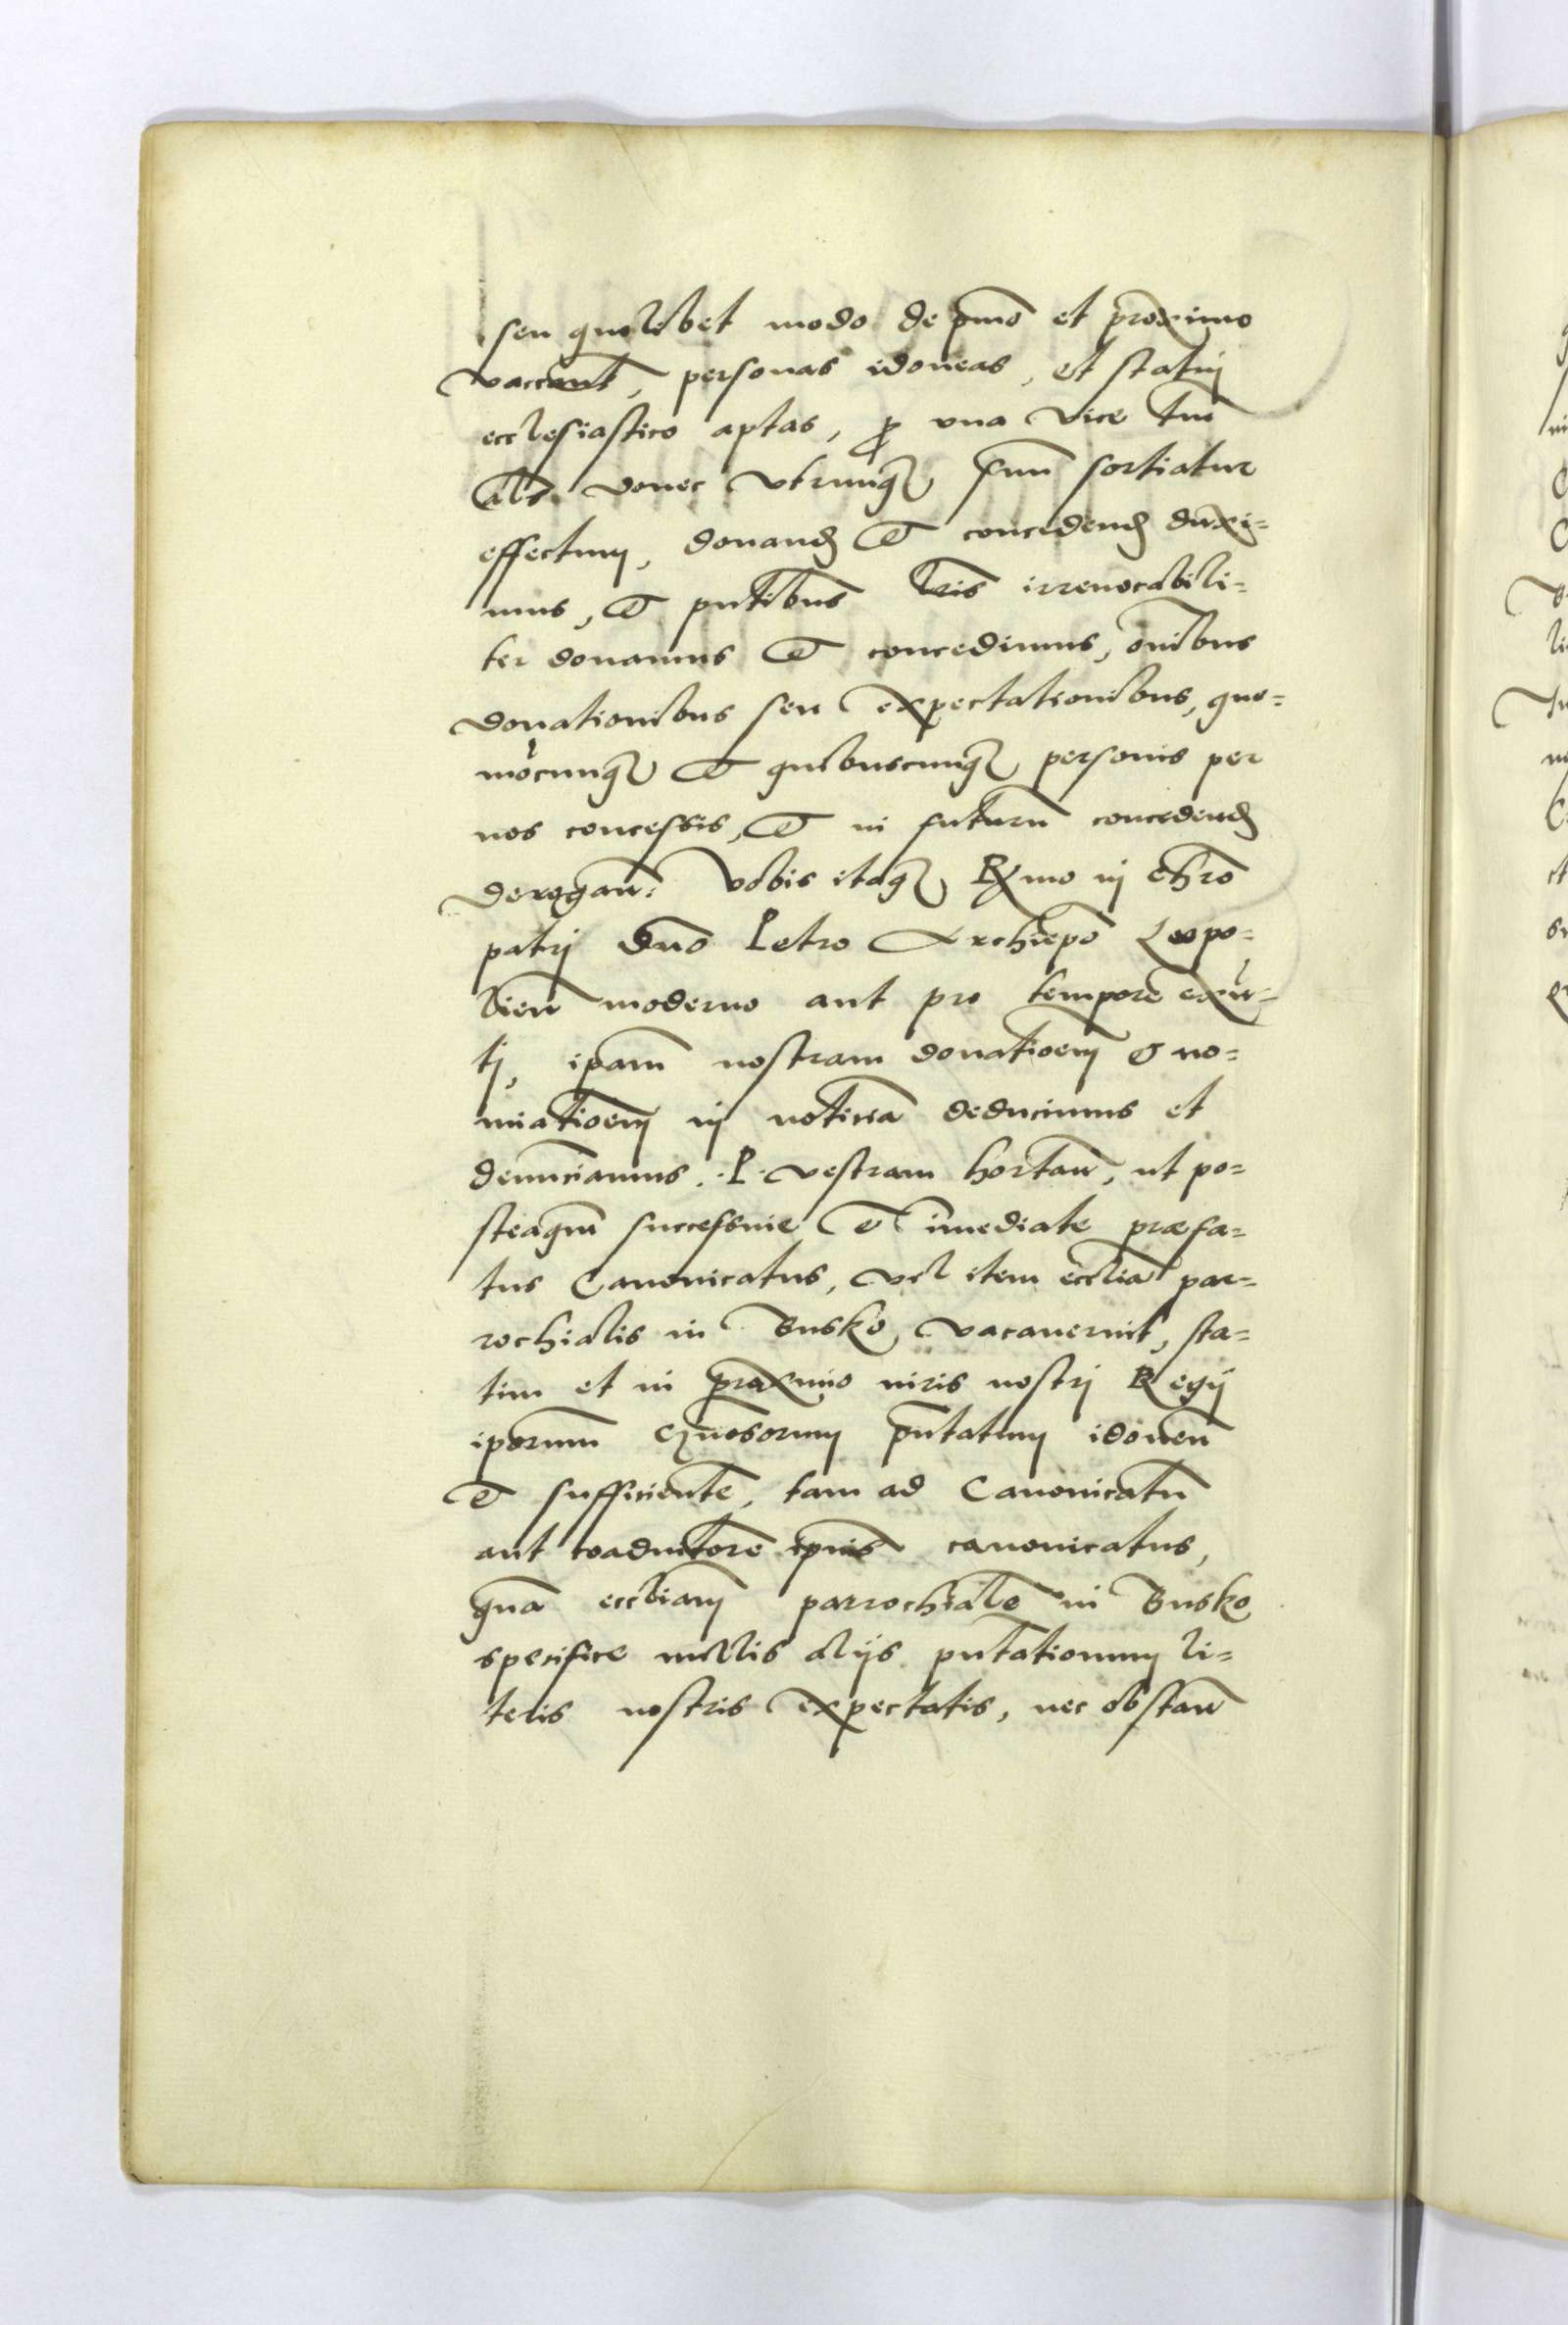 seu quolibet modo de pmo et proximo
vacant, personas idoneas, et statuj
ecclesiastico aptas, p una vice tm̄
als donec vtrunqꝫ suu sortiatur
effectum, donand et concedend duxi=
mus, et pntibus lris irreuocabili=
ter donamus et concedimus, oībus
donationibus seu expectationibus, quo=
mōcunqꝫ et quibuscunqꝫ personis per
nos concessis, et in futurū concedend
derogan: Vobis itaqꝫ Rxmo in chro
patrj Dno Petro Archiepo Leopo=
lien moderno aut pro tempore exñ=
tj, ipam nostram donatioem et no=
miatioem in noticiā deducimus et
denunciamus. P. vestram hortan, ut po=
steaqm successiue et imediate præfa=
tus Canonicatus, vel item ecclia par=
rochialis in Busko, vacauerint, sta=
tim et in proximo iuris nostrj Regij
iporum pntatum idoneū
et sufficientē, tam ad Canonicatū
aut coadiutorē ipius canonicatus,
quā eccliam parrochialē in Busko
specifice nullis alijs pntationum li=
teris nostris expectatis, nec obstan